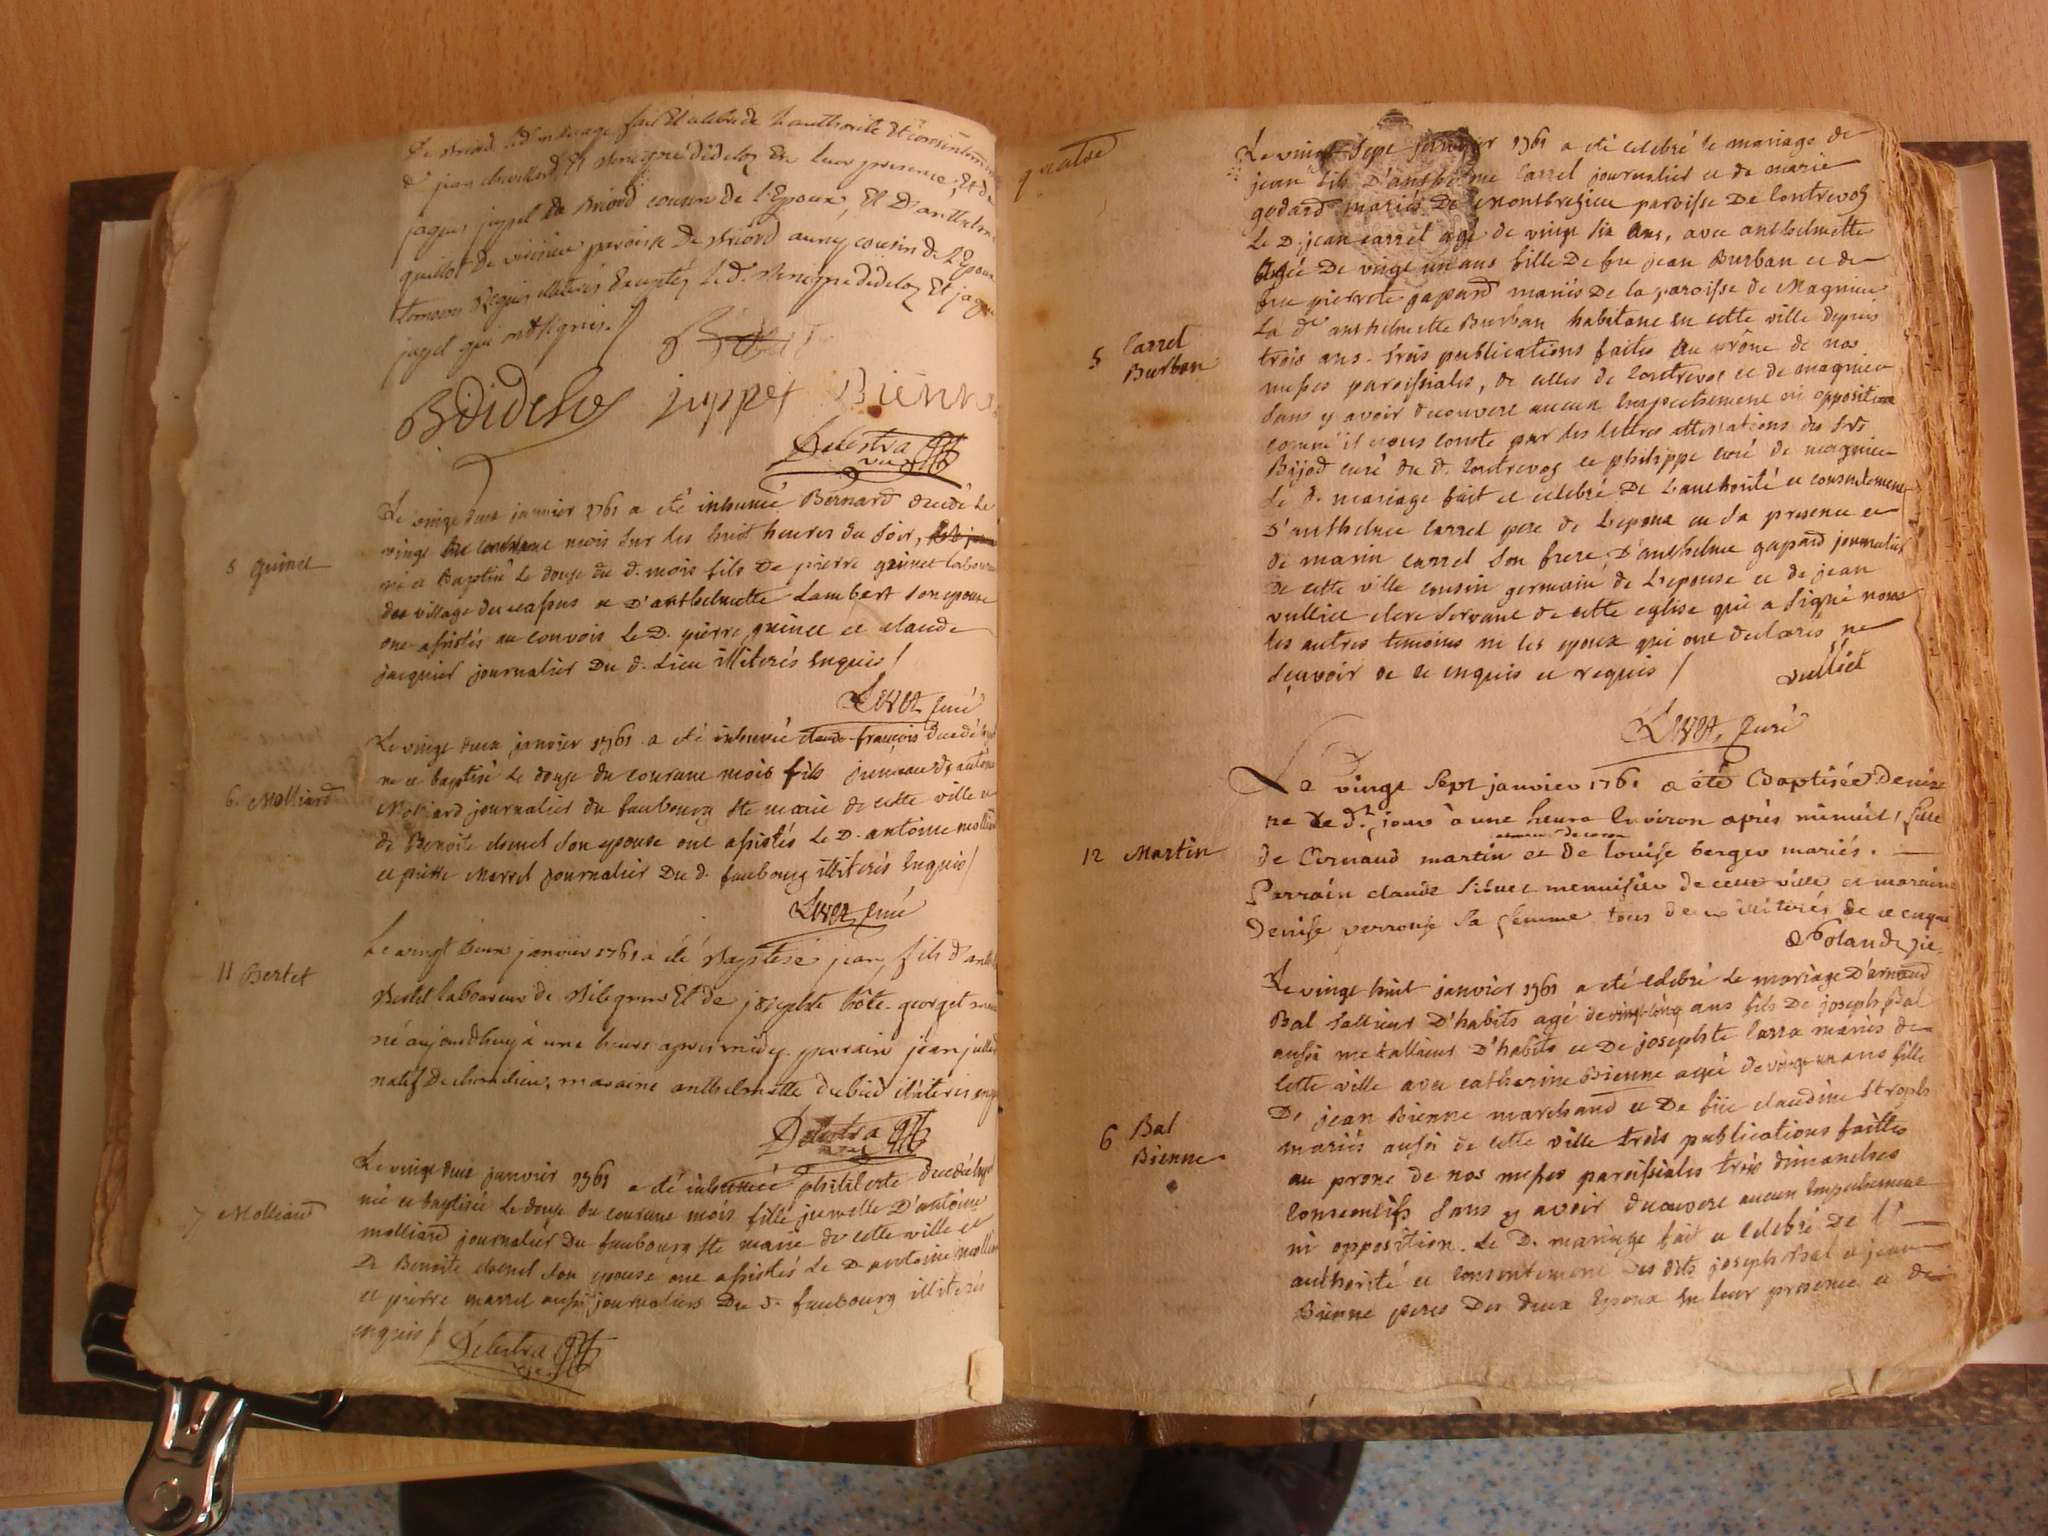 jean chevillard Et Benigne dideloz En leur presence, Et de
jaques juppet de Briord cousin de l'Epoux, Et D'anthelme
quillot de virieux paroisse De Briord aussy cousin de l'Epoux
temoins Requis illiterés Exceptéz Le d. Benigne dideloz Et jaques
jupet qui ont signés.
BDidelos juppet Bienne
Delestra vic
5 quinet
Le vingt deux janvier 1761 a eté inhumé Bernard decedé Le
vingt un courant mois sur les huit heures du soir,
né et Baptisé Le douze du d. mois fils de pierre quinet laboureur
du village de et D'anthelmette Lambert son epouse
ont assistés au convois Le D. pierre quinet et claude
jacquier journalier Du d. Lieu illiterés Enquis /
curé
6 Molliard
Le vingt deux janvier 1761 a eté inhumé claude françois decedé
né et baptisé Le douze du courant mois fils jumeau d'antoine
Molliard journalier du faubourg Ste marie de cette ville et
de Benoite son epouse ont assistés Le D. antoine molliard
et pierre Marrel journalier Du d. faubourg illiterés Enquis /
curé
11 Bertet
Le vingt deux janvier 1761 a eté Baptisé jean, fils d'anthelme
Bertet laboureur de Et de josephte hôte-georget
né aujourdhuy à une heure apres midy. parrain jean
natif De maraine anthelmette illiterés enquis
Delestra vic
7 Molliard
Le vingt deux janvier 1761 a eté inhumée philiberte decedée
née et baptisée Le douze du courant mois fille jumelle D'antoine
molliard journalier Du faubourg Ste marie de cette ville et
De Benoite son epouse ont assistés Le D. antoine molliard
et pierre marrel aussi journaliers Du d. faubourg illiterés
enquis /
Delestra vic
quatre
5 Carrel
Burban
Le vingt sept janvier 1761 a eté celebré le mariage de
jean fils D'anthelme Carrel journalier et de marie
godard mariés De Montbrezieu paroisse De Contrevoz
Le D. jean carrel agé de vingt six ans, avec anthelmette
agée De vingt un ans fille De feu jean Burban et de
feue pierrete gapard mariés De la paroisse de Magnieu
La de anthelmette Burban habitant en cette ville depuis
trois ans. trois publications faites au prône de nos
messes paroissiales, de celles de Contrevoz et de magnieu
sans y avoir decouvert aucun Empechement ni opposition
comme il nous conste par les lettres attestations des Srs
Bijod curé du d. Contrevoz et philippe curé de magnieu
Le d. mariage fait et celebré De L'authorité et consentement
D'anthelme Carrel pere de L'epoux en sa presence et
de marin carrel son frere, D'anthelme gapard journalier
De cette ville cousin germain de L'epouse et de jean
vulliet clerc servant de cette eglise qui a signé nons
les autres temoins ne les epoux qui ont declarés ne
sçavoir de ce enquis et requis / vulliet
curé
12 Martin
Le vingt Sept janvier 1761 a été Baptisée Denise
née Le dt. jour à une heure Environ aprés minuit, fille
de Ernaud martin et de Louise berger mariés.
Parrain claude menuisier de cette ville et maraine
Denise perrouse Sa femme tous deux illiterés de ce enquis
Rolande vic
6 Bal
Bienne
Le vingt huit janvier 1761 a eté celebré Le mariage D'arnaud
Bal tallieur D'habits agé de vingt cinq ans fils De joseph Bal
aussi me tallieur D'habits et De josephte Carra mariés de
cette ville avec catherine Bienne agée de vingt un ans fille
De jean Bienne marchand et De fue claudine
mariés aussi de cette ville trois publications faittes
au prone de nos messes paroissiales trois dimanches
Consecutifs sans y avoir decouvert aucun Empechement
ni opposition. Le D. mariage fait et Celebré De l'
authorité et consentement Des dits joseph Bal et jean
Bienne peres Des deux Epoux En leur presence et de